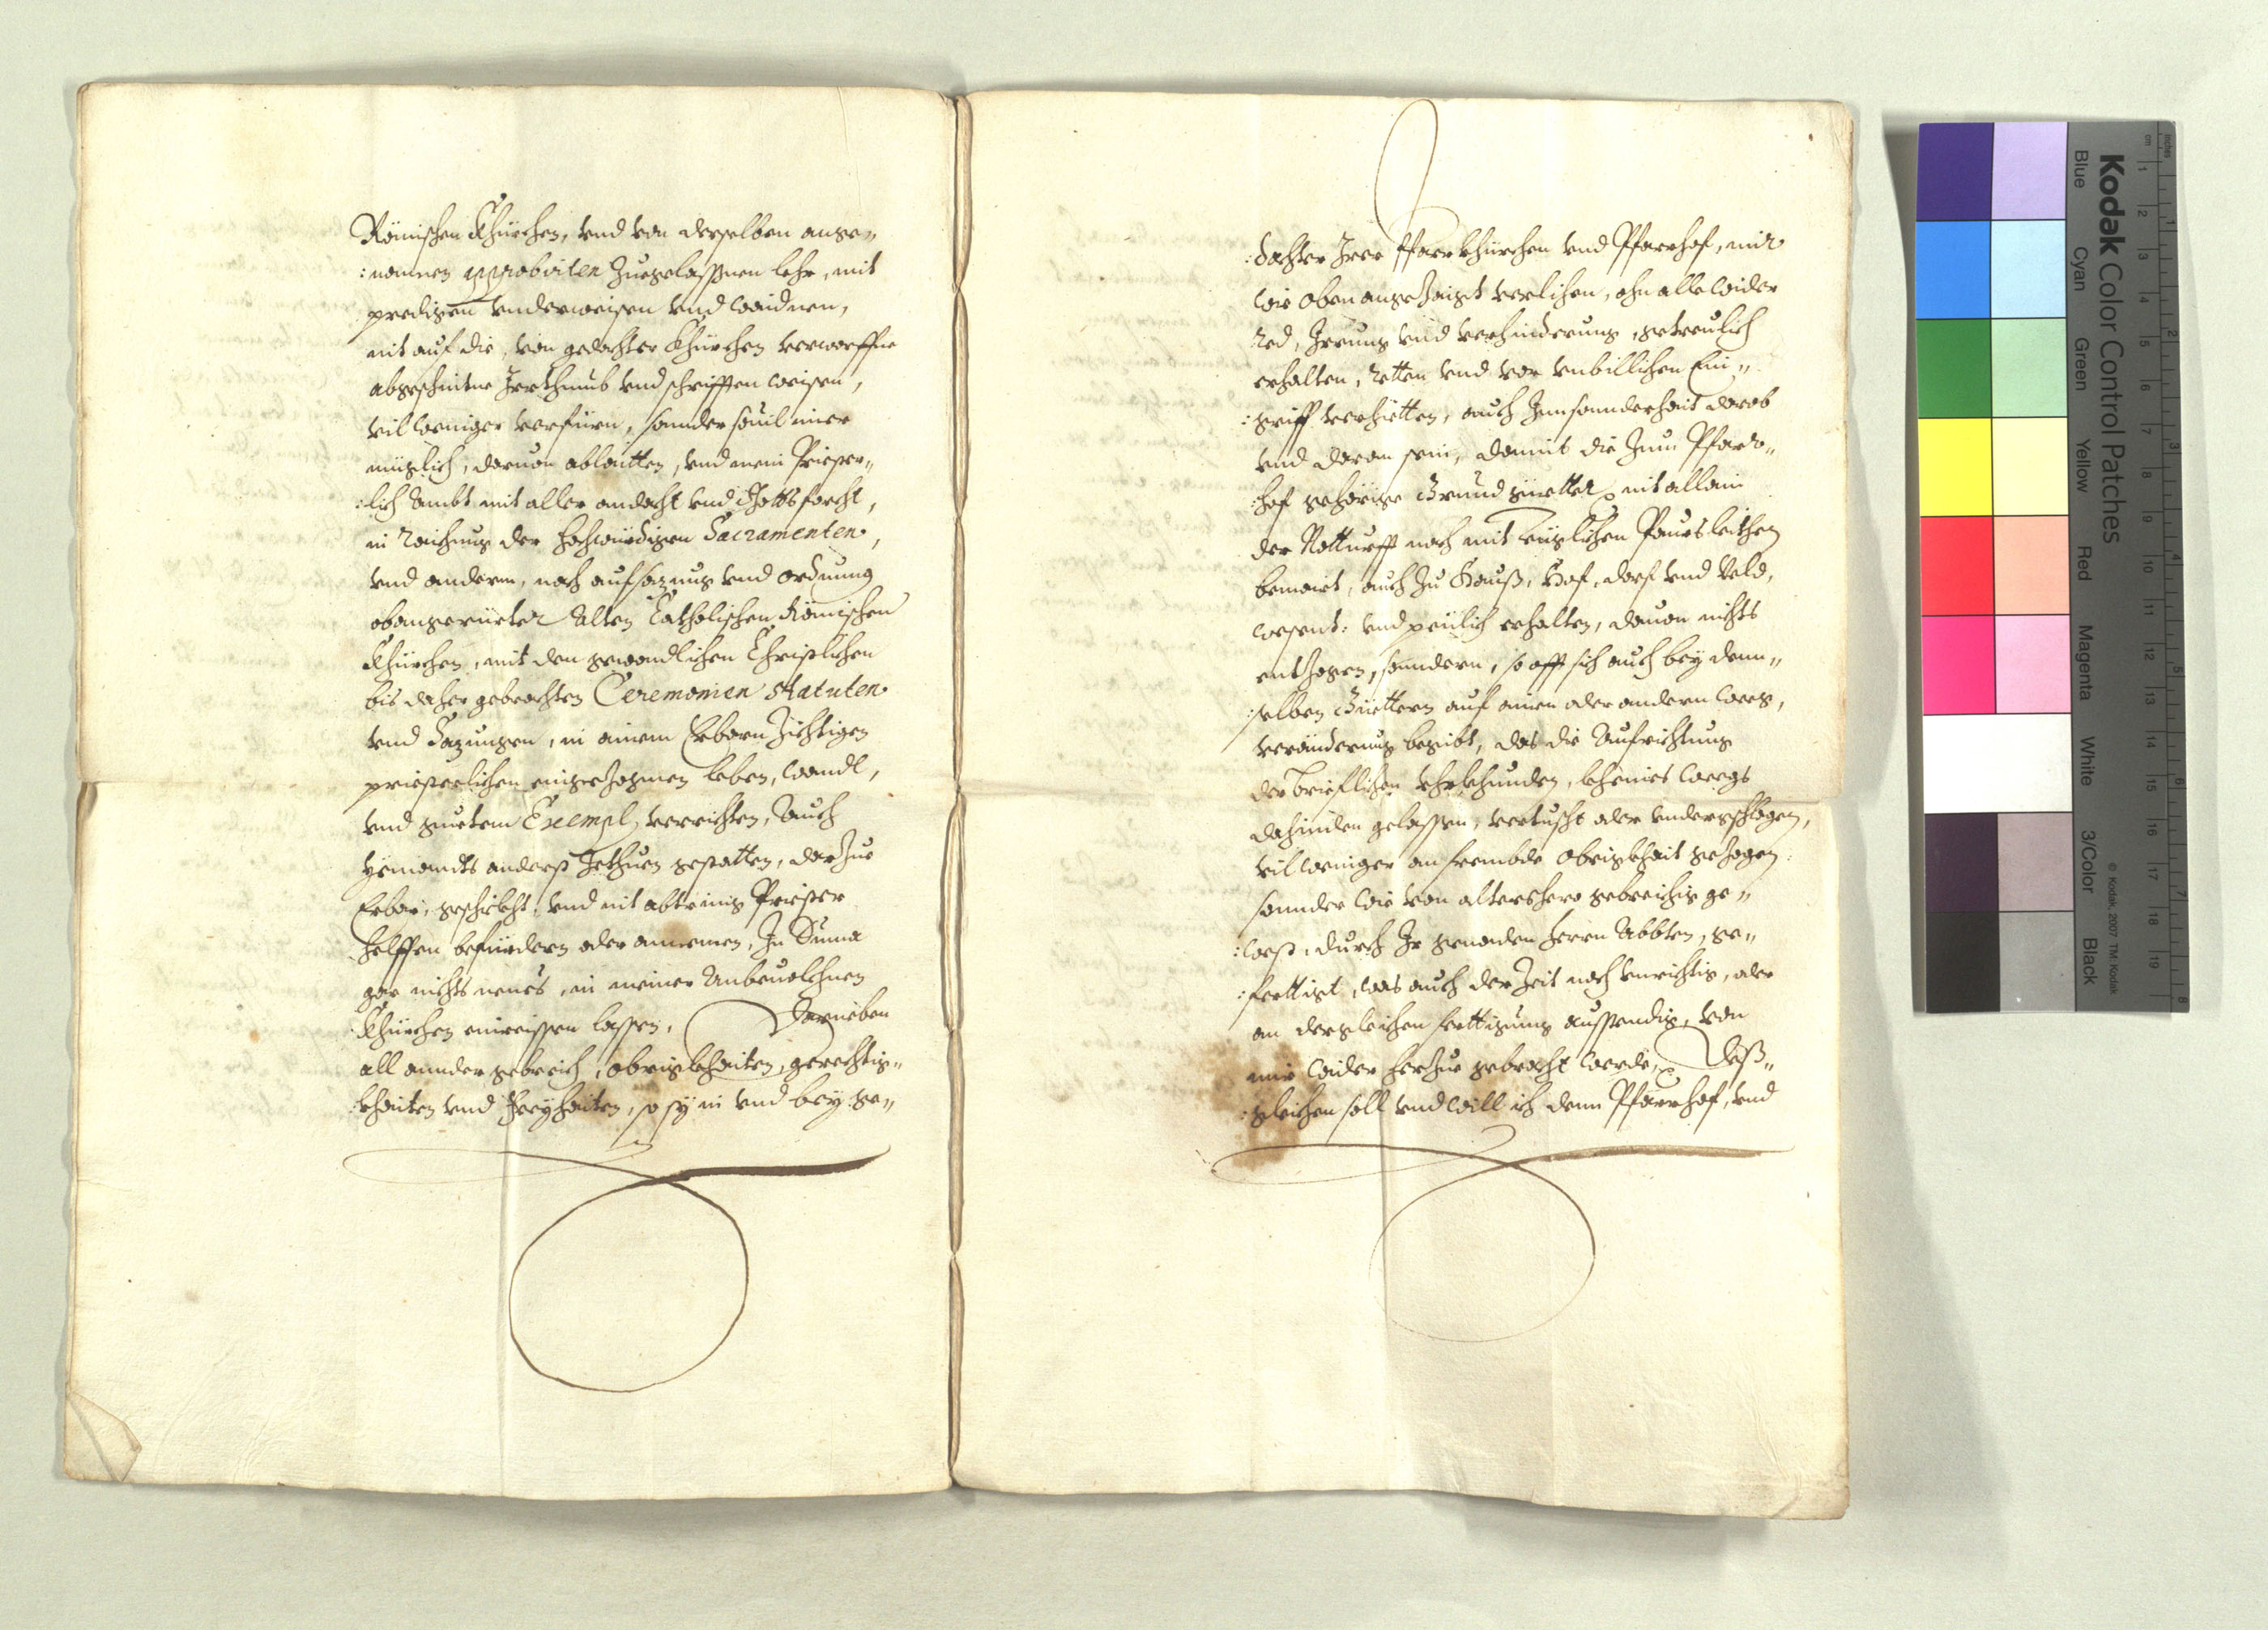 Römischen Khürchen, vnd von derselben ange„
:nomnen approbirten Zuegelassnen lehr, mit
predigen vnderweisen vnd waidnen,
nit auf die, von gedachter Khürchen verworffne
abgeschnitne Jrrthumb vnd schrifften weisen,
vil weniger verfüern, sonnder souil mier
müglich, daruon ablaitten, vnd mein Priester„
:lich Ambt mit aller andacht vnd Gottsforcht,
in Raichung der hochwürdigen Sacramenten,
vnd anderm, nach aufsazung vnd ordnung
obangerürter Alten Catholischen Römischen
Khürchen, mit den gewondlichen Christlichen
bis daher gebrachten Ceremonien statuten
vnd Sazungen, in ainem Erbarn Zichtigen
priesterlichen eingezognen leben, wandl,
vnd guetem Exempl, verrichten, Auch
yemandts anderst Zethuen gestatten, darzue
Erbar, geschickht, vnd nit abtrinig Priester
helffen befürdern oder annemen, In Suma
gar nichts neues, in meiner Anbeuolchnen
Khürchen einreissen lassen, Darneben
all annder gebreich, obrigkhaiten, gerechtig„
:khaiten vnd Freyhaiten, so sy in vnd bey ge„
:dachter Jrer Pfarrkhürchen vnd Pfarrhof, mir
wie oben angezaigt verlichen, ohn alle wider
Red, Jrrung vnd verhinderung, getreulich
erhalten, Retten vnd vor vnbillichen Ein„
:griff verhietten, auch Jnnsonnderhait darob
vnd daran sein, damit die Zum Pfarr„
:hof gehörige Grund güetter, nit allain
der Notturfft nach mit müglichen Paursleithen
bemairt, auch Zu Hauß, Hof, dorf vnd Veld,
wesent: vnd peulich erhalten, dauon nichts
entzogen, sonndern, so offt sich auch bey denn„
:selben Güettern auf ainen oder andern weeg,
veränderung begibt, das die Aufrichtung
der brieflichen vhrkhunden, khaines weegs
dahinden gelassen, vertuscht oder vndergschlagen,
vil weniger an frembde obrigkhait gezogen:
sonnder wie von altershero gebreichig ge„
:west, durch Jr genaden herrn Abbten, ge„
:ferttigt, was auch der Zeit noch vnrichtig, oder
an dergleichen ferttigung ausstendig, von
mir wider herzue gebracht werde, Deß„
:gleichen soll vnd will ich dem Pfarrhof, vnd
Kodak Color Control Patches
Blue Cyan Green Yellow Red Magenta White 3/Color Black
© Kodak, 2007 TM: Kodak
inches 1 2 3 4 5 6 7 8
cm 1 2 3 4 5 6 7 8 9 10 11 12 13 14 15 16 17 18 19